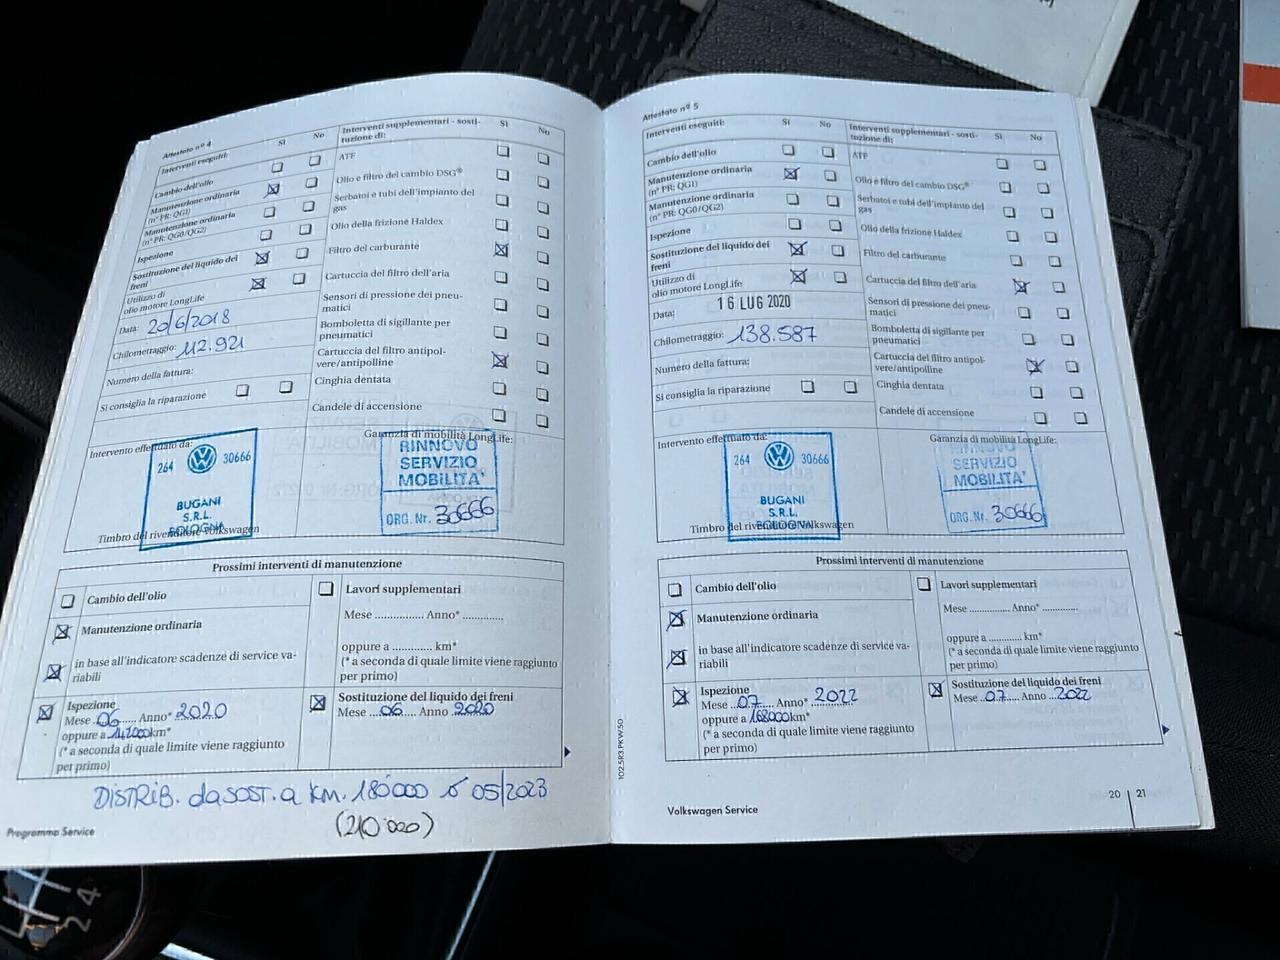 Attestato nº 4
Interventi eseguiti:
Sì
No
Cambio dell'olio
Manutenzione ordinaria
(nº PR: QG1)
Manutenzione ordinaria
(nº PR: QG0/QG2)
Ispezione
Sostituzione del liquido dei
freni
Utilizzo di
olio motore LongLife
Data: 20/6/2018
Chilometraggio: 112.921
Numero della fattura:
Si consiglia la riparazione
Interventi supplementari - sosti-
tuzione di:
Sì
No
ATF
Olio e filtro del cambio DSG®
Serbatoi e tubi dell'impianto del
gas
Olio della frizione Haldex
Filtro del carburante
Cartuccia del filtro dell'aria
Sensori di pressione dei pneu-
matici
Bomboletta di sigillante per
pneumatici
Cartuccia del filtro antipol-
vere/antipolline
Cinghia dentata
Candele di accensione
Intervento effettuato da:
264 30666
BUGANI
S.R.L.
BOLOGNA
Timbro del rivenditore Volkswagen
Garanzia di mobilità LongLife:
RINNOVO
SERVIZIO
MOBILITA'
ORG. Nr. 30666
Prossimi interventi di manutenzione
Cambio dell'olio
Manutenzione ordinaria
in base all'indicatore scadenze di service va-
riabili
Ispezione
Mese ..06...... Anno* 2020
oppure a 142000km*
(* a seconda di quale limite viene raggiunto
per primo)
Lavori supplementari
Mese ................ Anno* .............
oppure a ............ km*
(* a seconda di quale limite viene raggiunto
per primo)
Sostituzione del liquido dei freni
Mese ....06.... Anno .2020
DISTRIB. da SOST. a KM. 180000 o 05/2023
(210'000)
Programma Service
Attestato nº 5
Interventi eseguiti:
Sì
No
Cambio dell'olio
Manutenzione ordinaria
(nº PR: QG1)
Manutenzione ordinaria
(nº PR: QG0/QG2)
Ispezione
Sostituzione del liquido dei
freni
Utilizzo di
olio motore LongLife
Data: 16 LUG 2020
Chilometraggio: 138.587
Numero della fattura:
Si consiglia la riparazione
Interventi supplementari - sosti-
tuzione di:
Sì
No
ATF
Olio e filtro del cambio DSG®
Serbatoi e tubi dell'impianto del
gas
Olio della frizione Haldex
Filtro del carburante
Cartuccia del filtro dell'aria
Sensori di pressione dei pneu-
matici
Bomboletta di sigillante per
pneumatici
Cartuccia del filtro antipol-
vere/antipolline
Cinghia dentata
Candele di accensione
Intervento effettuato da:
264 30666
BUGANI
S.R.L.
BOLOGNA
Timbro del rivenditore Volkswagen
Garanzia di mobilità LongLife:
RINNOVO
SERVIZIO
MOBILITA'
ORG. Nr. 30666
Prossimi interventi di manutenzione
Cambio dell'olio
Manutenzione ordinaria
in base all'indicatore scadenze di service va-
riabili
Ispezione
Mese ..07..... Anno* 2022
oppure a 168000km*
(* a seconda di quale limite viene raggiunto
per primo)
Lavori supplementari
Mese .............. Anno* .............
oppure a ............ km*
(* a seconda di quale limite viene raggiunto
per primo)
Sostituzione del liquido dei freni
Mese ..07..... Anno ...2022
102.5R3.PKW.50
Volkswagen Service
20 | 21
2 4